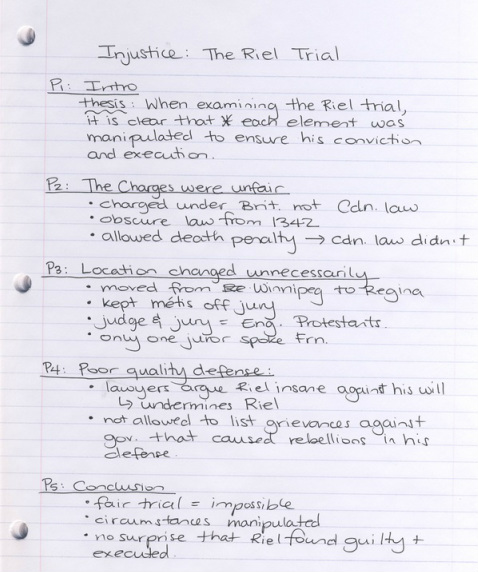 Injustice: The Riel Trial
P1: Intro
thesis: When examining the Riel trial,
it is clear that each element was
manipulated to ensure his conviction
and execution.
P2: The Charges were unfair
• charged under Brit. not Cdn. law
• obscure law from 1342
• allowed death penalty → cdn. law didn't
P3: Location changed unnecessarily
• moved from Winnipeg to Regina
• kept métis off jury
• judge & jury = Eng. Protestants.
• only one juror spoke Frn.
P4: Poor quality defense:
• lawyers argue Riel insane against his will
↳ undermines Riel
• not allowed to list grievances against
gov. that caused rebellions in his
defense.
P5: Conclusion
• fair trial = impossible
• circumstances manipulated
• no surprise that Riel found guilty +
executed.